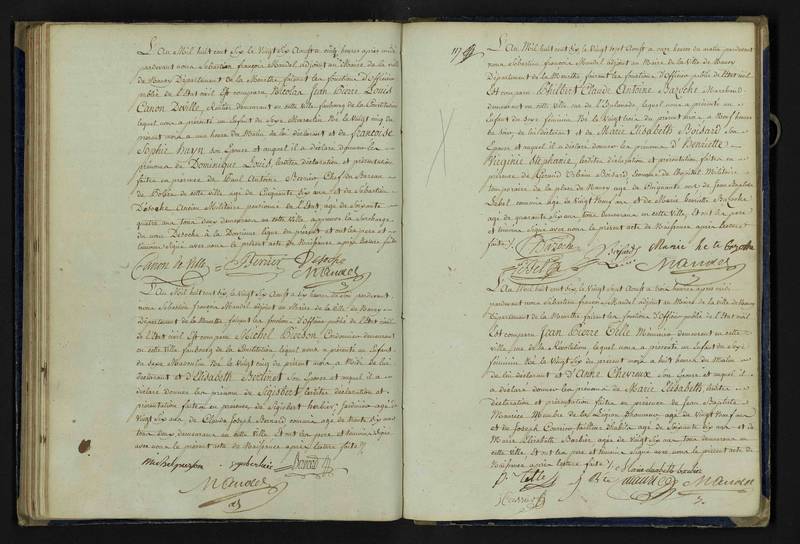 L'An Mil huit cent Six le Vingt Six Aoust a cinq heures après midi
pardevant nous Sébastien françois Mandel adjoint au Maire de la ville
de Nancy Département de la Meurthe, faisant les fonctions d'Officier
public de l'Etat civil Est comparu Nicolas Jean Pierre Louis
Canon Deville, demeurant en cette ville faubourg de la Constitution
lequel nous a présenté un Enfant du Sexe Masculin Né le Vingt cinq du
présent mois a une heure du Matin de lui déclarant et de françoise
Sophie Huyn son Epouse et auquel il a déclaré donner les
prénoms de Dominique Louis, lesdites déclaration et présentation
faites en présence de Paul Antoine Bernier Chef du Bureau
de Police de cette ville agé de Cinquante Six ans et de Sébastien
Desoche ancien Militaire pensionné de l'Etat, agé de Soixante
quatre ans tous deux demeurans en cette Ville approuvé la Surcharge
du nom Desoche à la Douzième ligne du présent et ont les père et
témoins signé avec nous le présent acte de Naissance après lecture faite
Canon de Ville Bernier Desoche
Mandel
L'An Mil huit cent Six, le Vingt Six Aoust a Six heures du soir pardevant
nous Sébastien françois Mandel adjoint au Maire de la Ville de Nancy
Département de la Meurthe faisant les fonctions d'Officier public de l'Etat civil
Est comparu Michel Cordonnier demeurant
en cette ville faubourg de la Constitution lequel nous a présenté un Enfant
du sexe Masculin Né le Vingt cinq du présent mois a Midi de lui
déclarant et d'Elisabeth son Epouse et auquel il a
déclaré donner les prénoms de Sigisbert lesdites déclaration et
présentation faites en présence de Sigisbert jardinier agé de
Vingt Six ans et de Claude Joseph Bernard commis agé de trente Six ans
tous deux demeurans en cette Ville. Et ont les père et témoins signé
avec nous le présent acte de Naissance après lecture faite
Bernard
Mandel
117
L'An Mil huit cent Six, le Vingt sept Aoust a onze heures du matin pardevant
nous Sébastien françois Mandel adjoint au Maire de la Ville de Nancy
Département de la Meurthe faisant les fonctions d'Officier public de l'Etat civil
Est comparu Philbert Claude Antoine Bazoche Marchand
demeurant en cette ville, rue de l'Esplanade lequel nous a présenté un
Enfant du sexe féminin Né le Vingt trois du présent mois a Neuf heures
du soir, de lui déclarant et de Marie Elisabeth Boisard Son
Epouse et auquel il a déclaré donner les prénoms d'Henriette
Virginie Stéphanie, lesdites déclaration et présentation faites en
présence de Gérard Urbain Boisard Econome de l'hopital Militaire
temporaire de la place de Nancy agé de Cinquante ans, de Jean
commis agé de Vingt Neuf ans et de Marie henriette Bazoche
agée de quarante Six ans tous demeurans en cette Ville, Et ont les père
et témoins Signé avec nous le présent acte de Naissance après lecture
faite
Bazoche Boisard Marie h.te bazoche
Mandel
L'An Mil huit cent Six, le Vingt Sept Aoust a trois heures après midi
pardevant nous Sébastien françois Mandel adjoint au Maire de la Ville de Nancy
Département de la Meurthe faisant les fonctions d'Officier public de l'Etat civil
Est comparu Jean Pierre Menuisier demeurant en cette
Ville rue de la Révolution, lequel nous a présenté un Enfant du Sexe
féminin Né le Vingt Six du présent mois a huit heures du Matin
de lui déclarant et d'Anne Chevreux son Epouse et auquel il
a déclaré donner les prénoms de Marie Elisabeth, lesdites
déclaration et présentation faites en présence de Jean Baptiste
Maurice Membre de la Légion d'honneur agé de Vingt Neuf ans
et de Joseph tailleur d'habits agé de Soixante Six ans et de
Marie Elisabeth Barbier agée de Vingt Six ans tous demeurans en
cette Ville, Et ont les père et témoins Signé avec nous le présent acte de
Naissance après lecture faite
Marie elisabeth barbier
Maurice Mandel